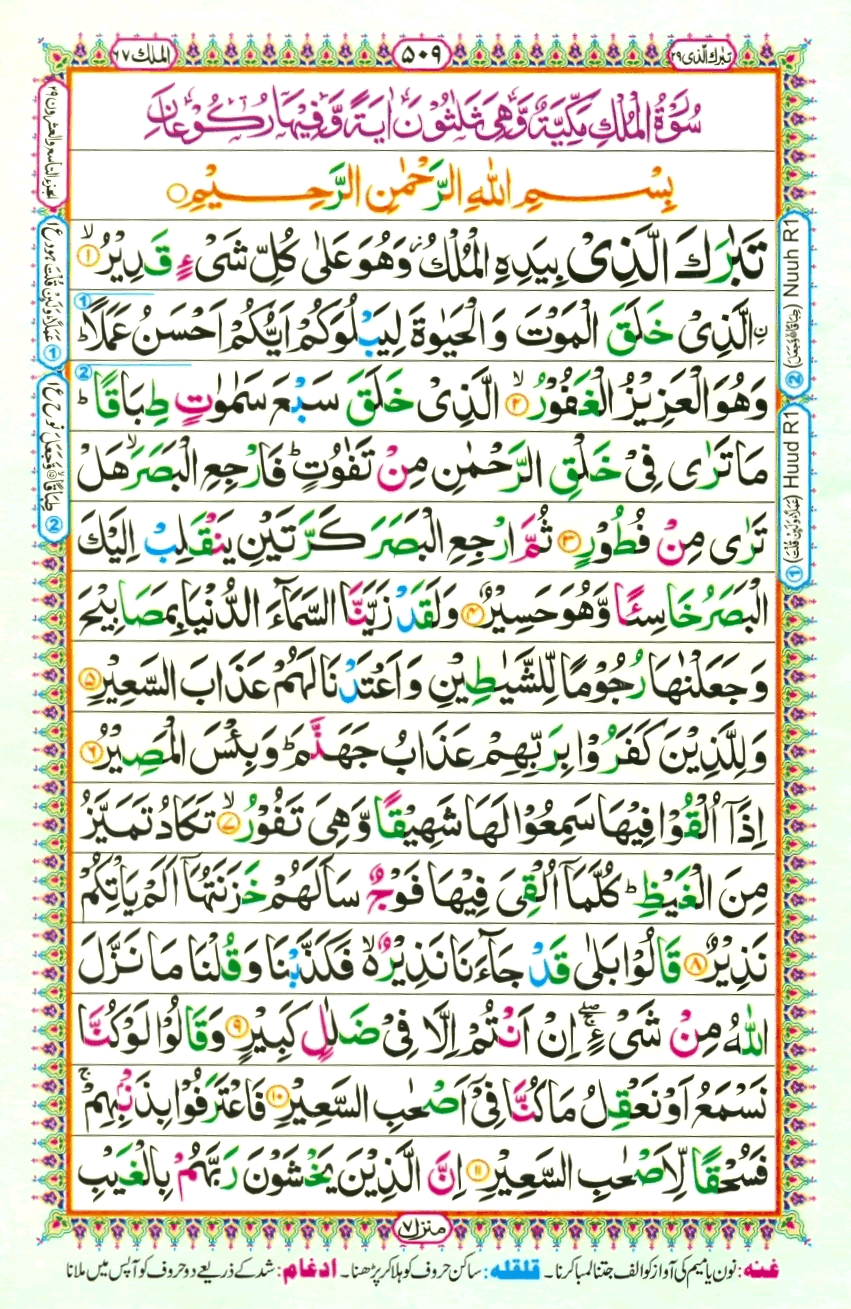 تبٰرك الذی ٢٩
٥٠٩
الملك ٦٧
سُوْرَةُ الْمُلْكِ مَكِّيَّةٌ وَّهِيَ ثَلٰثُوْنَ اٰيَةً وَّفِيْهَا رُكُوْعَانِ
بِسْمِ اللّٰهِ الرَّحْمٰنِ الرَّحِيْمِ
تَبٰرَكَ الَّذِيْ بِيَدِهِ الْمُلْكُ ؗ وَهُوَ عَلٰى كُلِّ شَيْءٍ قَدِيْرُ ۙ ﴿١﴾
ِ۟الَّذِيْ خَلَقَ الْمَوْتَ وَالْحَيٰوةَ لِيَبْلُوَكُمْ اَيُّكُمْ اَحْسَنُ عَمَلًا ؕ
وَهُوَ الْعَزِيْزُ الْغَفُوْرُ ۙ ﴿٢﴾ الَّذِيْ خَلَقَ سَبْعَ سَمٰوٰتٍ طِبَاقًا ؕ
مَا تَرٰى فِيْ خَلْقِ الرَّحْمٰنِ مِنْ تَفٰوُتٍ ؕ فَارْجِعِ الْبَصَرَ ۙ هَلْ
تَرٰى مِنْ فُطُوْرٍ ﴿٣﴾ ثُمَّ ارْجِعِ الْبَصَرَ كَرَّتَيْنِ يَنْقَلِبْ اِلَيْكَ
الْبَصَرُ خَاسِئًا وَّهُوَ حَسِيْرٌ ﴿٤﴾ وَلَقَدْ زَيَّنَّا السَّمَآءَ الدُّنْيَا بِمَصَابِيْحَ
وَجَعَلْنٰهَا رُجُوْمًا لِّلشَّيٰطِيْنِ وَاَعْتَدْنَا لَهُمْ عَذَابَ السَّعِيْرِ ﴿٥﴾
وَلِلَّذِيْنَ كَفَرُوْا بِرَبِّهِمْ عَذَابُ جَهَنَّمَ ؕ وَبِئْسَ الْمَصِيْرُ ﴿٦﴾
اِذَآ اُلْقُوْا فِيْهَا سَمِعُوْا لَهَا شَهِيْقًا وَّهِيَ تَفُوْرُ ۙ ﴿٧﴾ تَكَادُ تَمَيَّزُ
مِنَ الْغَيْظِ ؕ كُلَّمَآ اُلْقِيَ فِيْهَا فَوْجٌ سَاَلَهُمْ خَزَنَتُهَآ اَلَمْ يَاْتِكُمْ
نَذِيْرٌ ﴿٨﴾ قَالُوْا بَلٰى قَدْ جَآءَنَا نَذِيْرٌ ۙ۬ فَكَذَّبْنَا وَقُلْنَا مَا نَزَّلَ
اللّٰهُ مِنْ شَيْءٍ ۚۖ اِنْ اَنْتُمْ اِلَّا فِيْ ضَلٰلٍ كَبِيْرٍ ﴿٩﴾ وَقَالُوْا لَوْ كُنَّا
نَسْمَعُ اَوْ نَعْقِلُ مَا كُنَّا فِيْٓ اَصْحٰبِ السَّعِيْرِ ﴿١٠﴾ فَاعْتَرَفُوْا بِذَنْۢبِهِمْ ۚ
فَسُحْقًا لِّاَصْحٰبِ السَّعِيْرِ ﴿١١﴾ اِنَّ الَّذِيْنَ يَخْشَوْنَ رَبَّهُمْ بِالْغَيْبِ
منزل ٧
غنه: نون یا میم کی آواز کو الف جتنا لمبا کرنا۔ قلقله: ساکن حروف کو ہلا کر پڑھنا۔ ادغام: شد کے ذریعے دو حروف کو آپس میں ملانا
الجزء التاسع والعشرون ٢٩
① عَمَلًا وَّلَئِنْ قُلْتَ ہود ع ١
② طِبَاقًا وَّجَعَلَ نوح ع ١
② (طِبَاقًا وَّجَعَلَ) Nuuh R1
① (عَمَلًا وَّلَئِنْ قُلْتَ) Huud R1
①
②